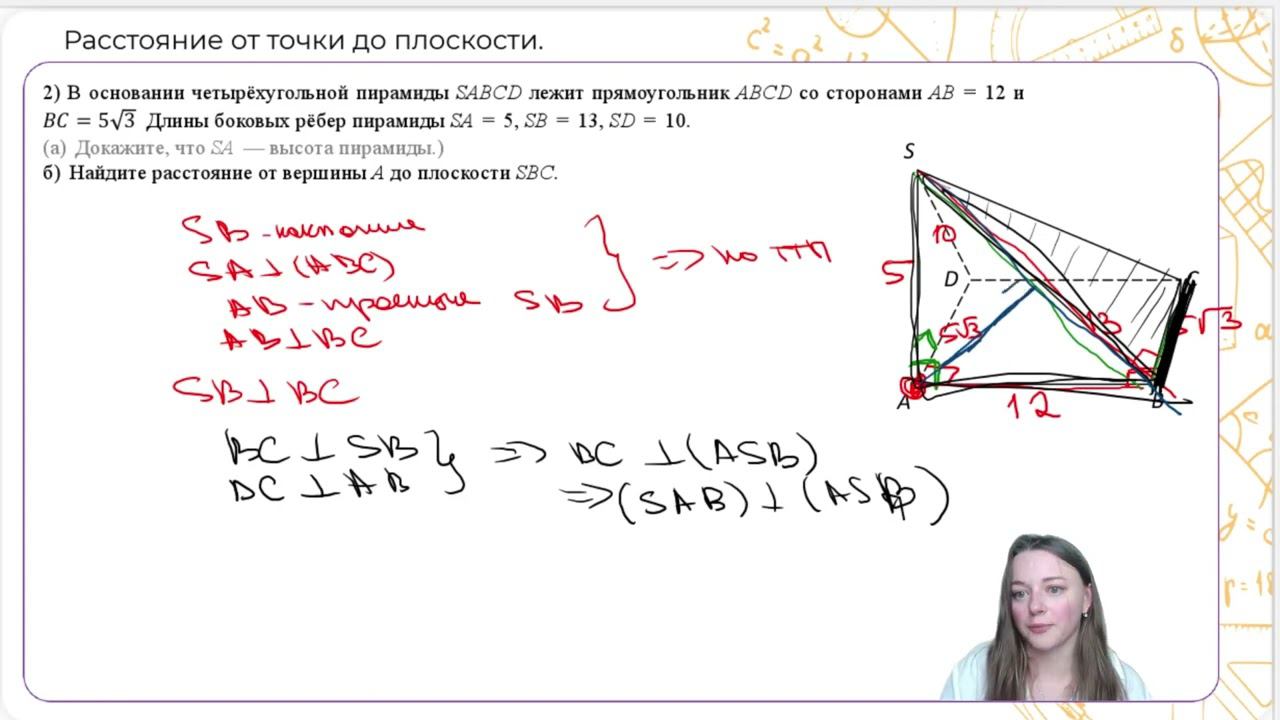 Расстояние от точки до плоскости.
2) В основании четырёхугольной пирамиды SABCD лежит прямоугольник ABCD со сторонами AB = 12 и
BC = 5√3 Длины боковых рёбер пирамиды SA = 5, SB = 13, SD = 10.
(а) Докажите, что SA — высота пирамиды.)
б) Найдите расстояние от вершины A до плоскости SBC.
SB - наклонная
SA ⊥ (ABC)
AB - проекция SB
AB ⊥ BC
} => по ТТП
SB ⊥ BC
BC ⊥ SB
BC ⊥ AB
} => BC ⊥ (ASB)
=> (SAB) ⊥ (
S
10
5
D
C
5√3
13
5√3
A
12
B
c² = a²
δ
y =
r = 18